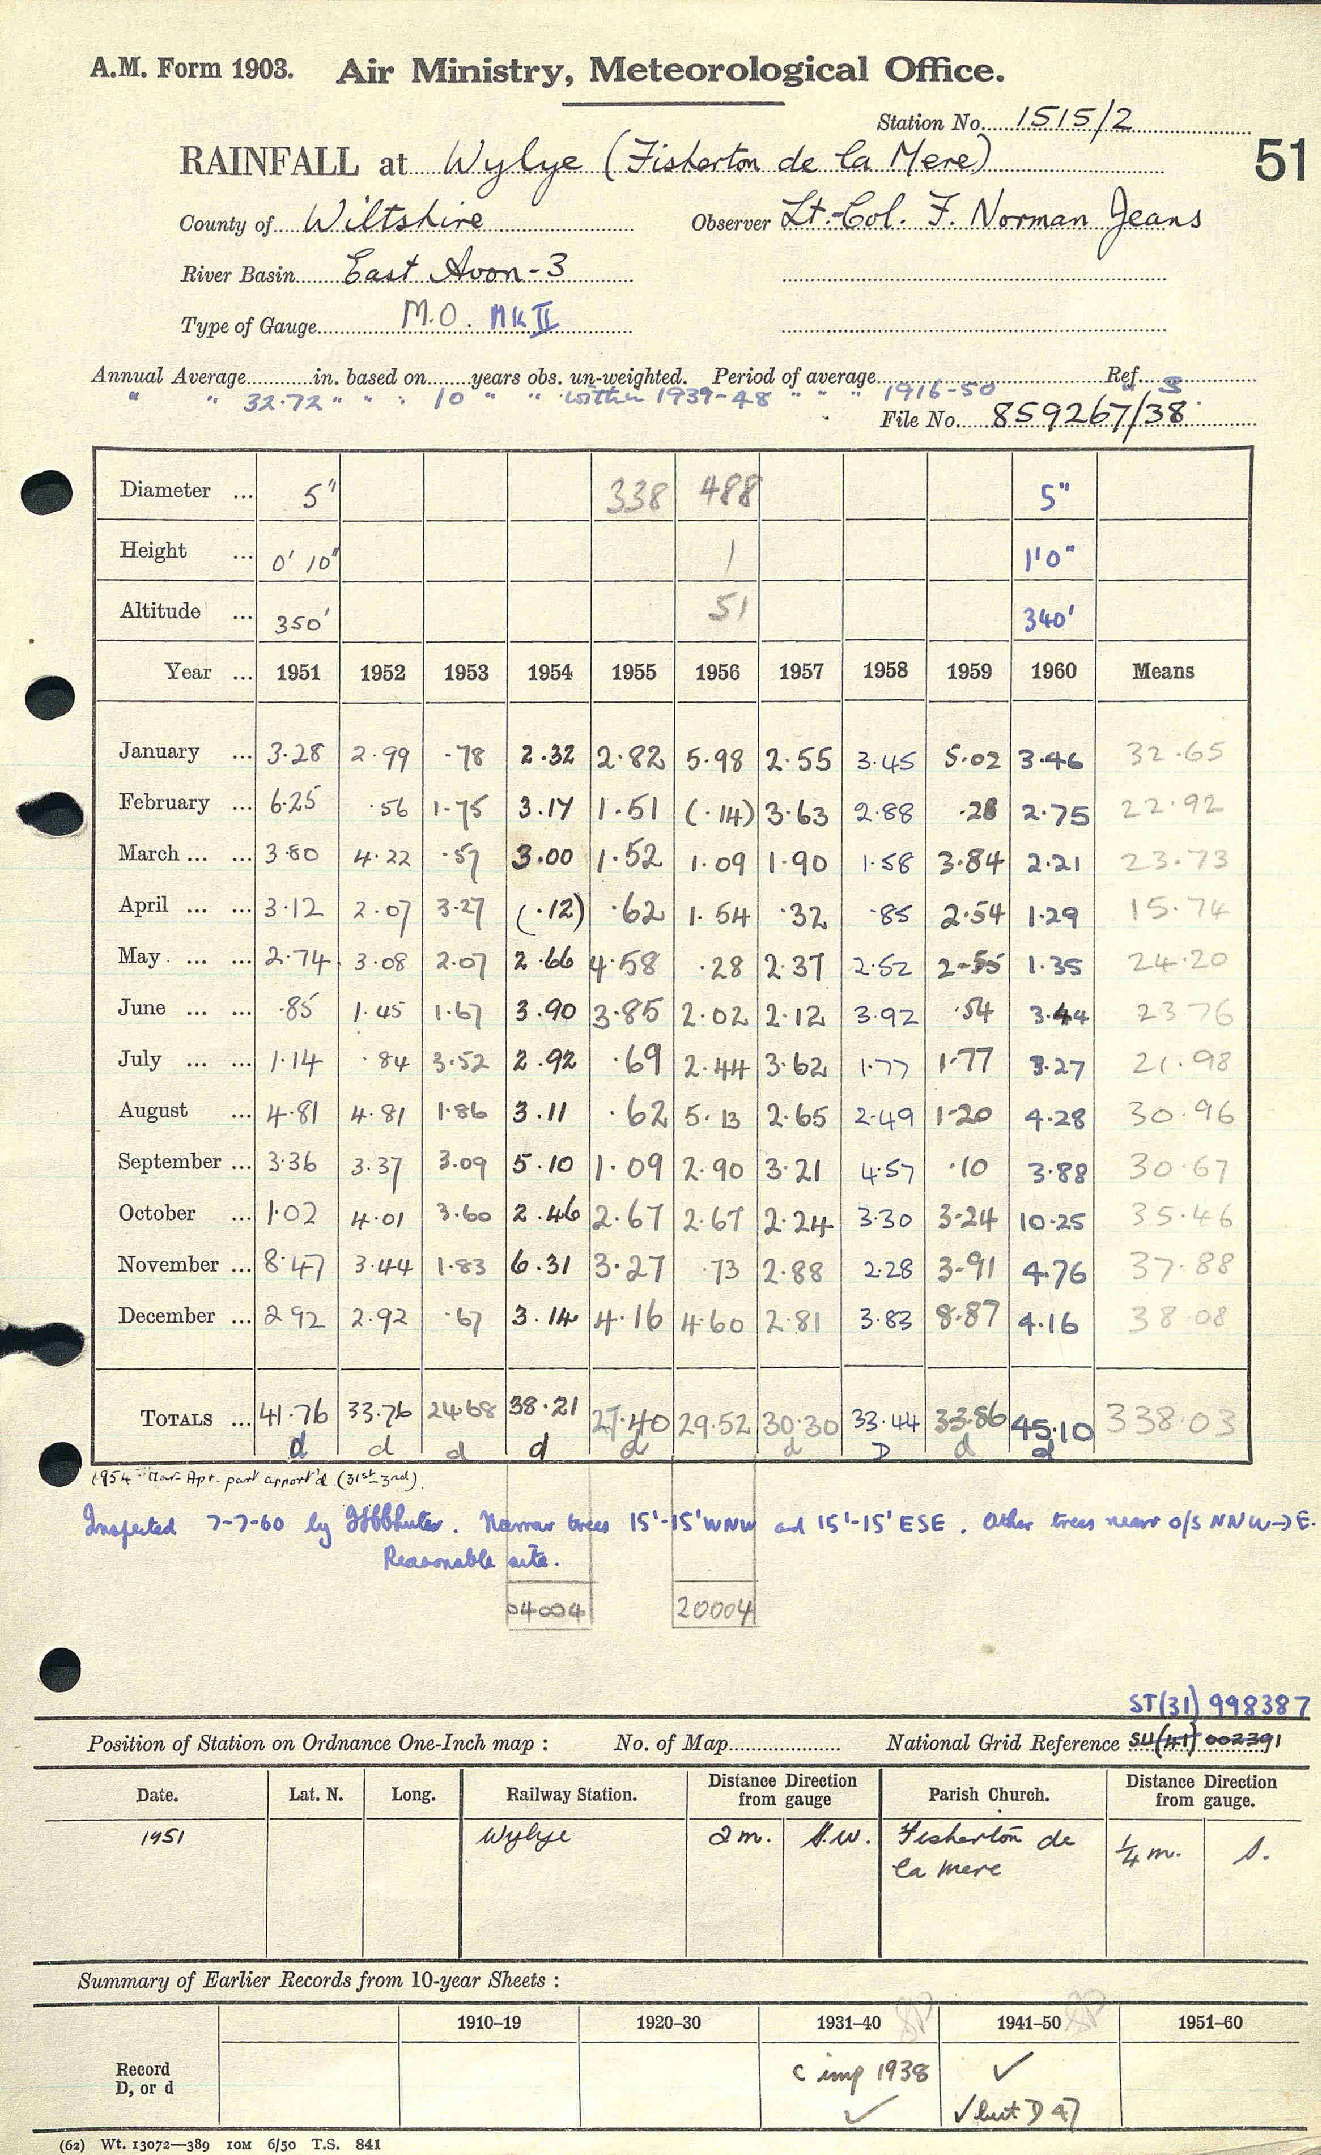 A.M. Form 1903. Air Ministry, Meteorological Office.
Station No. 1515/2
RAINFALL at Wylye (Fisherton de la Mere)
51
County of Wiltshire Observer Lt.-Col. F. Norman Jeans
River Basin East Avon-3
Type of Gauge M.O. Mk II
Annual Average in. based on years obs. un-weighted. Period of average Ref. S
" " 32.72 " " " 10 " " within 1939-48 " " " 1916-50 "
File No. 859267/38
Diameter ... 5" 338 488 5"
Height ... 0' 10" 1 1'0"
Altitude ... 350' 51 340'
Year ... 1951 1952 1953 1954 1955 1956 1957 1958 1959 1960 Means
January ... 3.28 2.99 .78 2.32 2.82 5.98 2.55 3.45 5.02 3.46 32.65
February ... 6.25 .56 1.75 3.17 1.51 (.14) 3.63 2.88 .28 2.75 22.92
March ... ... 3.80 4.22 .57 3.00 1.52 1.09 1.90 1.58 3.84 2.21 23.73
April ... ... 3.12 2.07 3.27 (.12) .62 1.54 .32 .85 2.54 1.29 15.74
May ... ... 2.74 3.08 2.07 2.66 4.58 .28 2.37 2.52 2.55 1.35 24.20
June ... ... .85 1.45 1.67 3.90 3.85 2.02 2.12 3.92 .54 3.44 23.76
July ... ... 1.14 .84 3.52 2.92 .69 2.44 3.62 1.77 1.77 3.27 21.98
August ... 4.81 4.81 1.86 3.11 .62 5.13 2.65 2.49 1.20 4.28 30.96
September ... 3.36 3.37 3.09 5.10 1.09 2.90 3.21 4.57 .10 3.88 30.67
October ... 1.02 4.01 3.60 2.46 2.67 2.67 2.24 3.30 3.24 10.25 35.46
November ... 8.47 3.44 1.83 6.31 3.27 .73 2.88 2.28 3.91 4.76 37.88
December ... 2.92 2.92 .67 3.14 4.16 4.60 2.81 3.83 8.87 4.16 38.08
TOTALS ... 41.76 33.76 24.68 38.21 27.40 29.52 30.30 33.44 33.86 45.10 338.03
d d d d d d D d d
1954 Mar-Apr. part apport'd (31st-3rd).
Inspected 7-7-60 by . Narrow trees 15'-15' WNW and 15'-15' ESE. Other trees near o/s NNW→E.
Reasonable site.
04004 20004
ST(31) 998387
Position of Station on Ordnance One-Inch map : No. of Map National Grid Reference SU(41) 002391
Date. Lat. N. Long. Railway Station. Distance Direction from gauge Parish Church. Distance Direction from gauge.
1951 Wylye 2 m. S.W. Fisherton de la mere 1/4 m. S.
Summary of Earlier Records from 10-year Sheets :
1910–19 1920–30 1931–40 1941–50 1951–60
Record D, or d c imp 1938 ✓ ✓ ✓ but D 47
(62) Wt. 13072—389 10M 6/50 T.S. 841